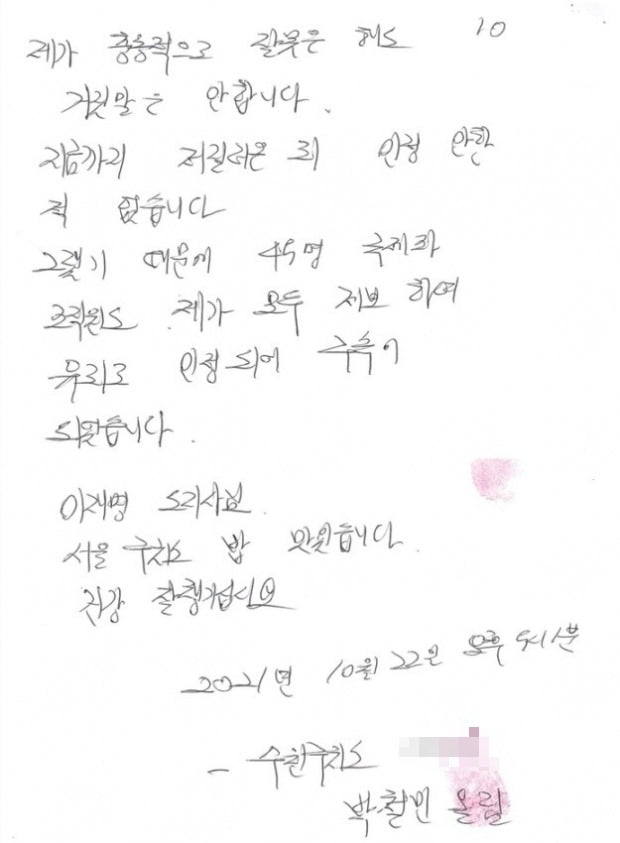 10
제가 충동적으로 잘못은 해도
거짓말은 안합니다.
지금까지 저질러온 죄 인정 안한
적 없습니다
그렇기 때문에 45명 국제파
조직원도 제가 모두 제보 하여
유죄로 인정되어 구속이
되었습니다.
이재명 도지사님
서울 구치소 밥 맛있습니다
건강 잘챙겨십시요
2021년 10월 22일 오후 5시1분
- 수원구치소
박철민 올림